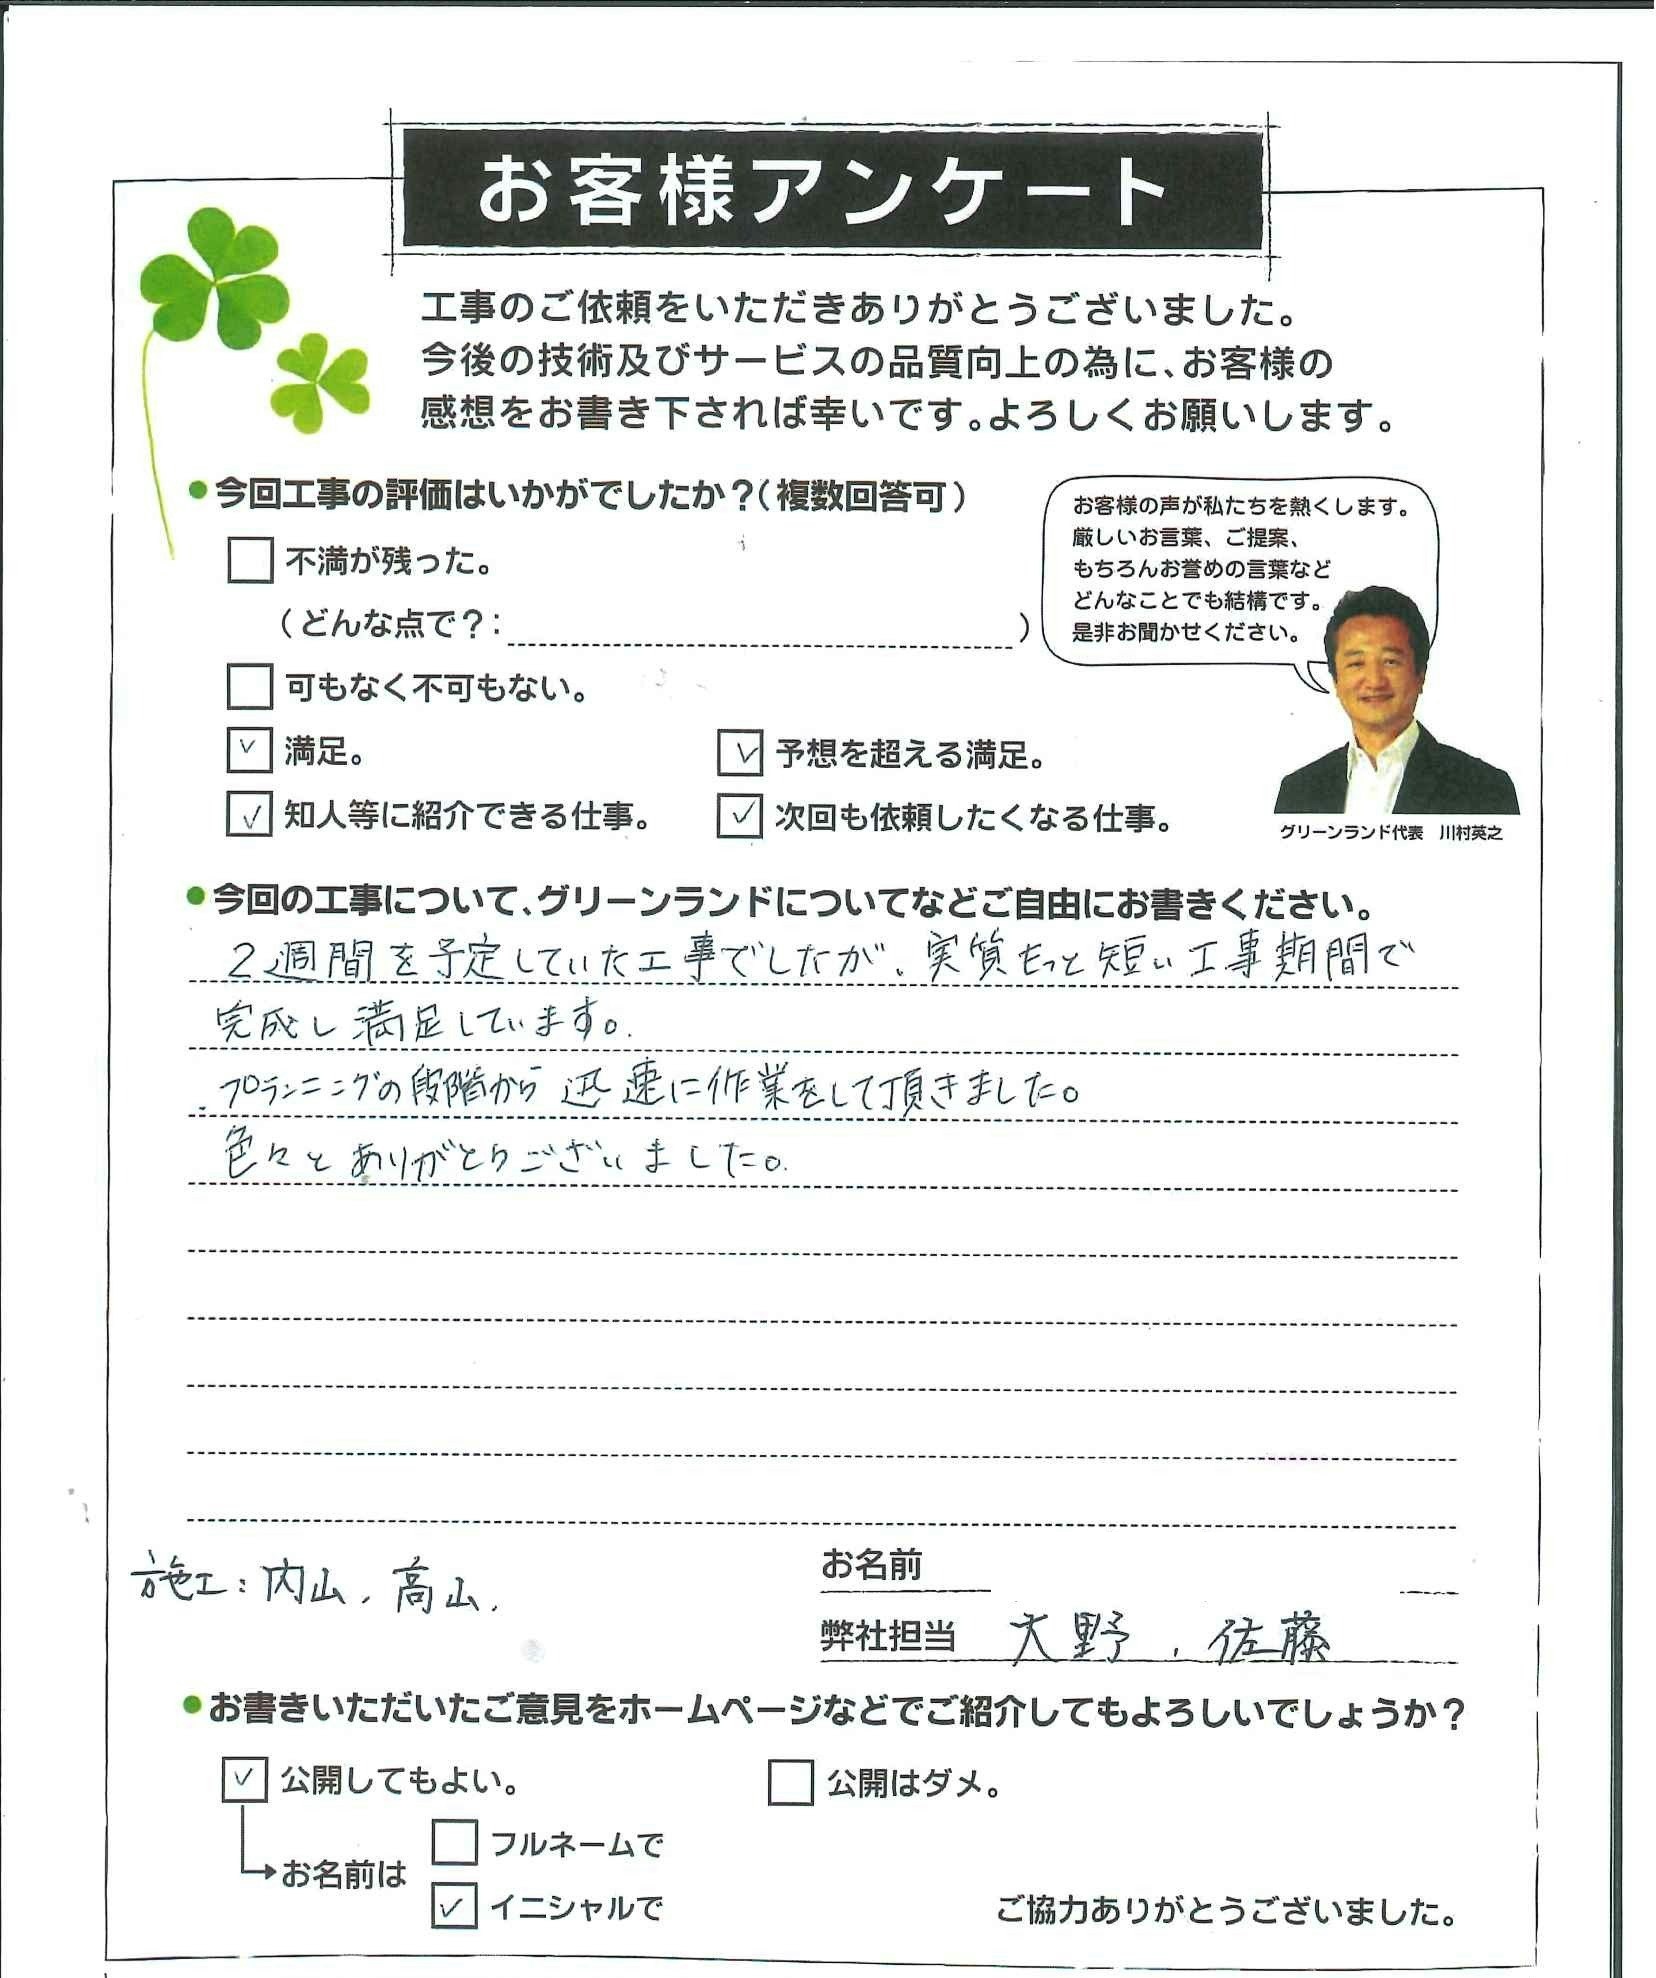 お客様アンケート
工事のご依頼をいただきありがとうございました。
今後の技術及びサービスの品質向上の為に、お客様の
感想をお書き下されば幸いです。よろしくお願いします。
●今回工事の評価はいかがでしたか？（複数回答可）
お客様の声が私たちを熱くします。
厳しいお言葉、ご提案、
もちろんお誉めの言葉など
どんなことでも結構です。
是非お聞かせください。
グリーンランド代表　川村英之
不満が残った。
（どんな点で？：　　　）
可もなく不可もない。
✓ 満足。
✓ 予想を超える満足。
✓ 知人等に紹介できる仕事。
✓ 次回も依頼したくなる仕事。
●今回の工事について、グリーンランドについてなどご自由にお書きください。
2週間を予定していた工事でしたが、実質もっと短い工事期間で
完成し満足しています。
プランニングの段階から迅速に作業をして頂きました。
色々とありがとうございました。
施工：内山、高山、
お名前
弊社担当　大野、佐藤
●お書きいただいたご意見をホームページなどでご紹介してもよろしいでしょうか？
✓ 公開してもよい。
公開はダメ。
お名前は
フルネームで
✓ イニシャルで
ご協力ありがとうございました。